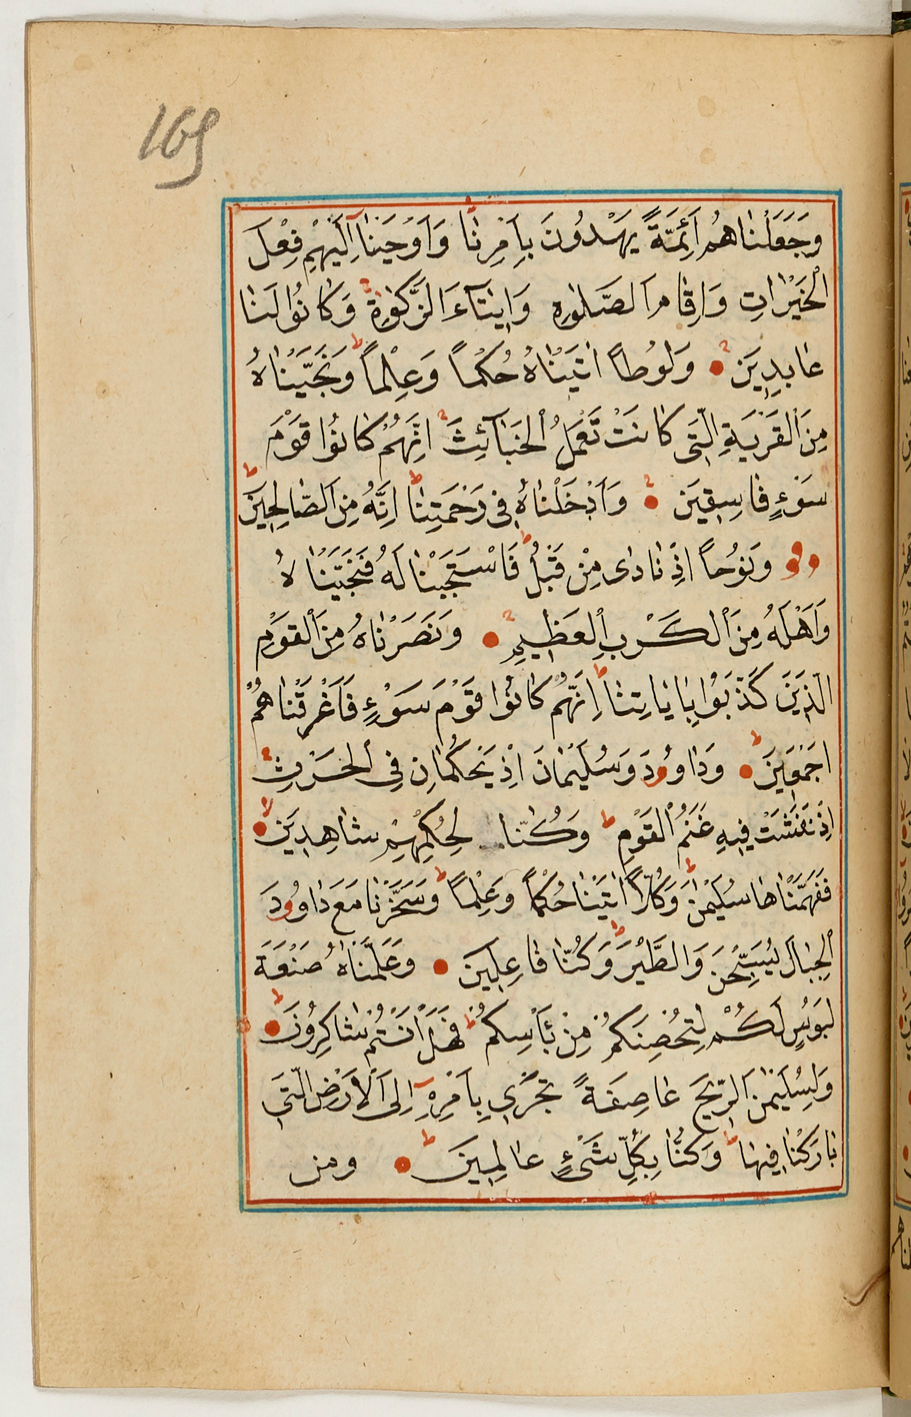 169
وَجَعَلْنَاهُمْ اَئِمَّةً يَهْدُونَ بِاَمْرِنَا وَاَوْحَيْنَآ اِلَيْهِمْ فِعْلَ
الْخَيْرَاتِ وَاِقَامَ الصَّلٰوةِ وَاِيتَآءَ الزَّكٰوةِ وَكَانُوا لَنَا
عَابِدِينَ وَلُوطًا اٰتَيْنَاهُ حُكْمًا وَعِلْمًا وَنَجَّيْنَاهُ
مِنَ الْقَرْيَةِ الَّتِى كَانَتْ تَعْمَلُ الْخَبَآئِثَ اِنَّهُمْ كَانُوا قَوْمَ
سَوْءٍ فَاسِقِينَ وَاَدْخَلْنَاهُ فِى رَحْمَتِنَا اِنَّهُ مِنَ الصَّالِحِينَ
وَنُوحًا اِذْ نَادٰى مِنْ قَبْلُ فَاسْتَجَبْنَا لَهُ فَنَجَّيْنَاهُ
وَاَهْلَهُ مِنَ الْكَرْبِ الْعَظِيمِ وَنَصَرْنَاهُ مِنَ الْقَوْمِ
الَّذِينَ كَذَّبُوا بِاٰيَاتِنَا اِنَّهُمْ كَانُوا قَوْمَ سَوْءٍ فَاَغْرَقْنَاهُمْ
اَجْمَعِينَ وَدَاوُودَ وَسُلَيْمَانَ اِذْ يَحْكُمَانِ فِى الْحَرْثِ
اِذْ نَفَشَتْ فِيهِ غَنَمُ الْقَوْمِ وَكُنَّا لِحُكْمِهِمْ شَاهِدِينَ
فَفَهَّمْنَاهَا سُلَيْمٰنَ وَكُلًّا اٰتَيْنَا حُكْمًا وَعِلْمًا وَسَخَّرْنَا مَعَ دَاوُودَ
الْجِبَالَ يُسَبِّحْنَ وَالطَّيْرَ وَكُنَّا فَاعِلِينَ وَعَلَّمْنَاهُ صَنْعَةَ
لَبُوسٍ لَكُمْ لِتُحْصِنَكُمْ مِنْ بَأْسِكُمْ فَهَلْ اَنْتُمْ شَاكِرُونَ
وَلِسُلَيْمٰنَ الرِّيحَ عَاصِفَةً تَجْرِى بِاَمْرِهِ اِلَى الْاَرْضِ الَّتِى
بَارَكْنَا فِيهَا وَكُنَّا بِكُلِّ شَىْءٍ عَالِمِينَ وَمِنَ